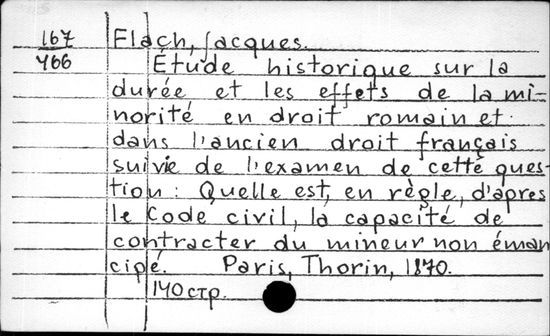 167 Flach, Jacques.
466 Étude historique sur la
durée et les effets de la mi-
norité en droit romain et
dans l'ancien droit français
suivie de l'examen de cette ques-
tion: Quelle est, en règle, d'apres
le Code civil, la capacité de
contracter du mineur non éman
cipé. Paris, Thorin, 1870.
140 стр.